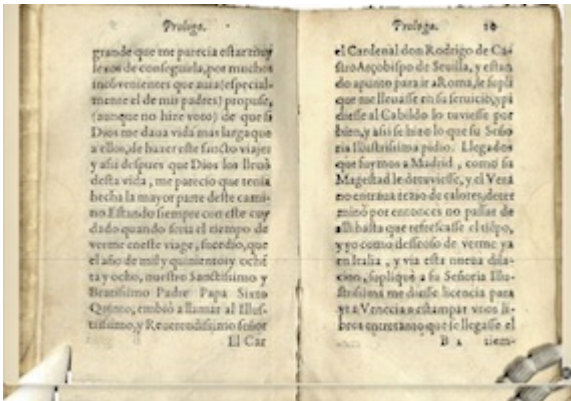 Prologo.
grande que me parecia estar muy
lexos de conseguirla, por muchos
inconvenientes que auia (especial-
mente el de mis padres) propuse,
(aunque no hize voto) de que si
Dios me daua vida mas larga que
a ellos, de hazer este sancto viaje:
y assi despues que Dios los lleuò
desta vida, me parecio que tenia
hecha la mayor parte deste cami-
no. Estando siempre con este cuy
dado quando seria el tiempo de
verme en este viage, sucedio, que
el año de mil y quinientos y ochē
ta y ocho, nuestro Sanctissimo y
Beatissimo Padre Papa Sixto
Quinto, embiò a llamar al Illus-
trissimo, y Reuerendissimo señor
El Car
Prologo. 10
el Cardenal don Rodrigo de Ca-
stro Arçobispo de Seuilla, y estan
do apunto para ir a Roma, le supli
que me lleuasse en su seruicio, y pi
diesse al Cabildo lo tuuiesse por
bien, y assi se hizo lo que su Seño
ria Illustrissima pidio. Llegados
que fuymos a Madrid, como su
Magestad le detuuiesse, y el Vera
no entraua de calores, deter
minò por entonces no passar de
alli hasta que refrescasse el tiēpo,
y yo como desseoso de verme ya
en Italia, y via esta nueua dila-
cion, supliquè a su Señoria Illu-
strissima me diesse licencia para
yr a Venecia a estampar vnos li-
bros entretanto que se llegasse el
B 2 tiem-